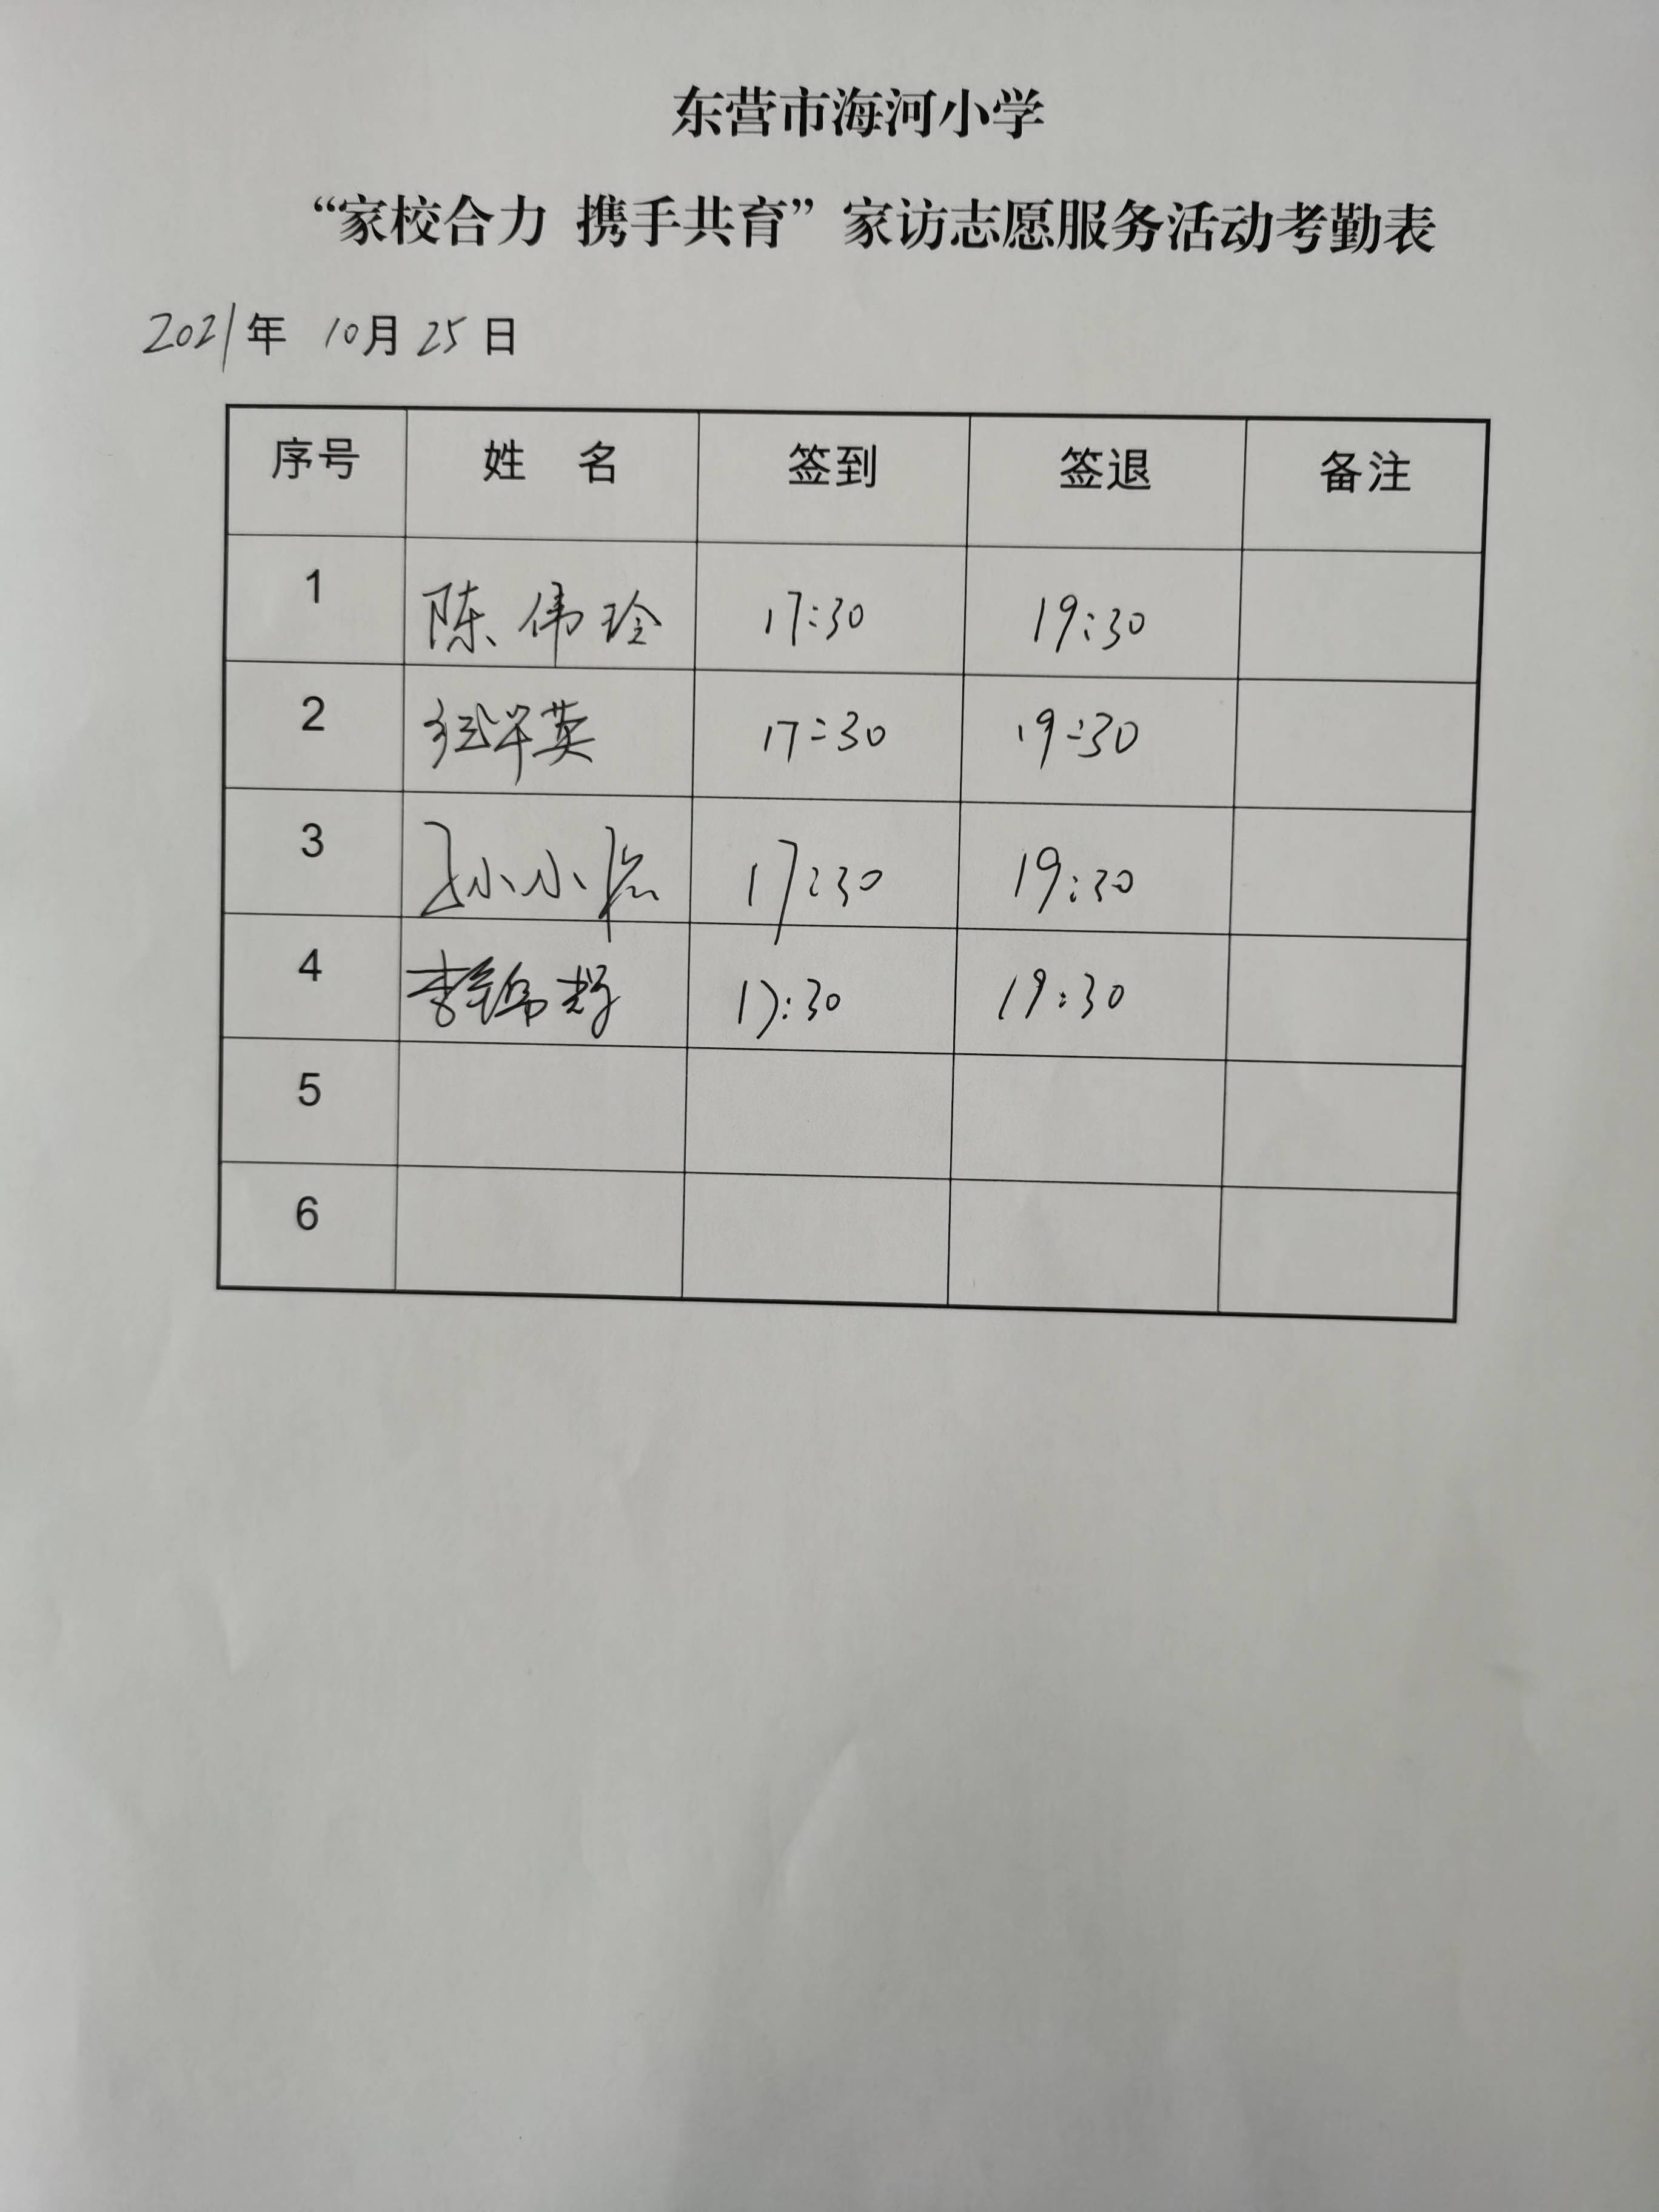 东营市海河小学
“家校合力 携手共育”家访志愿服务活动考勤表
2021年 10月 25日
序号 姓 名 签到 签退 备注
1 陈伟玲 17:30 19:30
2 17:30 19:30
3 孙小 17:30 19:30
4 李锦 17:30 19:30
5
6